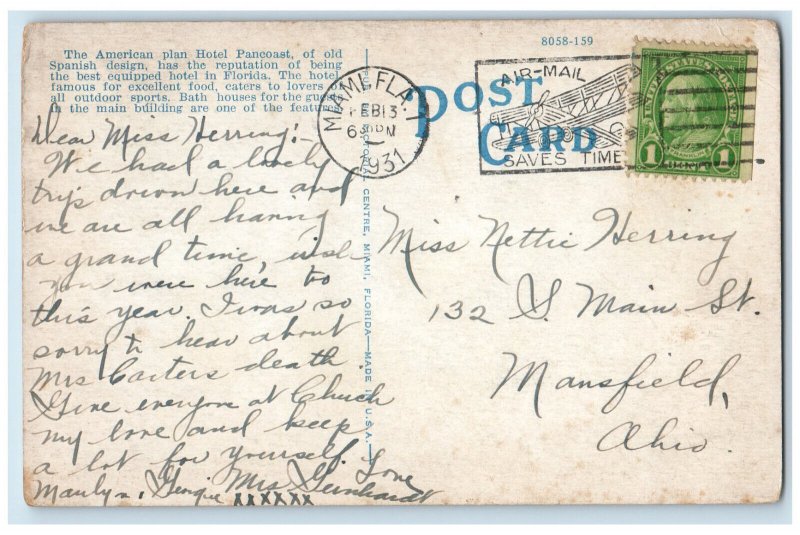 The American plan Hotel Pancoast, of old
Spanish design, has the reputation of being
the best equipped hotel in Florida. The hotel
famous for excellent food, caters to lovers of
all outdoor sports. Bath houses for the guests
in the main building are one of the features.
8058-159
POST
CARD
MIAMI, FLA. 1
FEB 13
6 PM
1931
AIR-MAIL
SAVES TIME
UNITED STATES POSTAGE
1 CENT 1
CENTRE, MIAMI, FLORIDA—MADE IN U.S.A.
Dear Miss Herring:-
We had a lovely
trip down here and
we are all having
a grand time, wish
you were here to
this year. I was so
sorry to hear about
Mrs Carters death.
Give everyone at Church
my love and keep
a lot for yourself. Love
Marilyn, Mrs Gernhardt
xxxxxx
Miss Nettie Herring
132 S. Main St.
Mansfield,
Ohio.